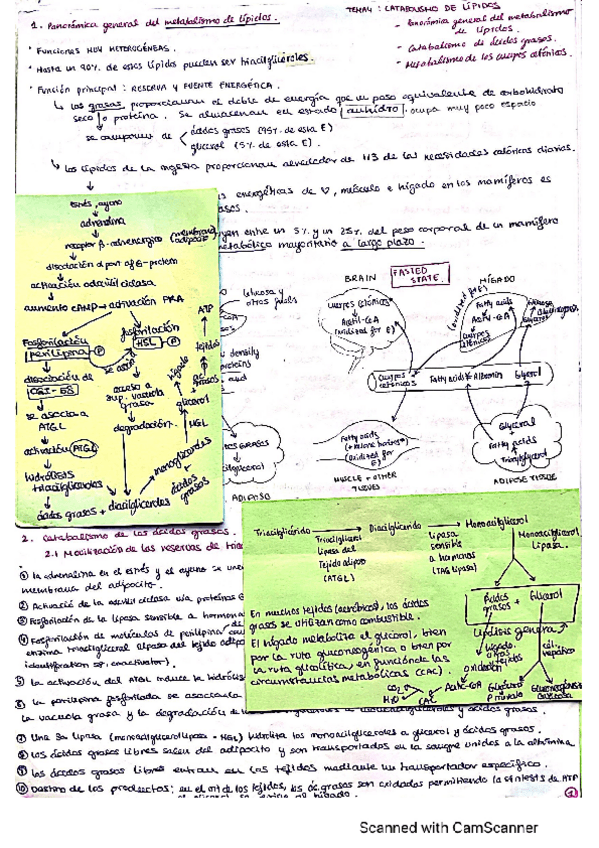 TEMA 4: CATABOLISMO DE LÍPIDOS
- Panorámica general del metabolismo de lípidos.
- Catabolismo de ácidos grasos.
- Metabolismo de los cuerpos cetónicos.
1. Panorámica general del metabolismo de lípidos.
· Funciones MUY HETEROGÉNEAS.
· Hasta un 90% de estos lípidos pueden ser triacilgliceroles.
· Función principal: RESERVA Y FUENTE ENERGÉTICA.
↳ Las grasas proporcionan el doble de energía que un peso equivalente de carbohidrato
seco o proteína. Se almacenan en estado anhidro. ocupa muy poco espacio
se componen de
ácidos grasos (95% de esta E)
glicerol (5% de esta E).
↳ Los lípidos de la ingesta proporcionan alrededor de 1/3 de las necesidades calóricas diarias.
energéticas de ♡, músculo e hígado en los mamíferos es
entre un 5% y un 25% del peso corporal de un mamífero
metabólico mayoritario a largo plazo.
Estrés, ayuno
adrenalina
receptor β-adrenérgico (membrana adipocito)
disociación α part of G-protein
activación adenilil ciclasa
aumento cAMP → activación PKA
Fosforilación perilipina - P
fosforilación HSL - P
disociación de CGI-58
se asocia a ATGL
activación ATGL
hidrólisis triacilgliceroles
ácidos grasos + diacilgliceroles
se asocia
acceso a sup. vacuola grasa
degradación
monogliceroles
MGL
glicerol
ácidos grasos
Hígado
ac grasos
tejidos
ATP
Glucosa y
density
proteins
BRAIN
FASTED STATE.
HÍGADO
Cuerpos cetónicos
Acetil-CoA
(oxidized for E)
(oxidized for E)
Fatty acids
Acetil-CoA
cuerpos cetónicos
Glucosa
Glicerol
Cuerpos cetónicos
Fatty acids - Albumin
Glycerol
Fatty acids
(+ketone bodies)
(oxidized for E)
MUSCLE + OTHER TISSUES
Glycerol
+
Fatty acids
Triacylglycerol
ADIPOSE TISSUE
ADIPOSO
2. Catabolismo de los ácidos grasos.
2.1 Movilización de las reservas de
① La adrenalina en el estrés y el ayuno se une
membrana del adipocito.
② Activación de la adenilil ciclasa vía proteínas G
③ Fosforilación de la lipasa sensible a hormona
④ Fosforilación de moléculas de perilipina
enzima triacilglicerol lipasa del tejido adiposo
identification 58, coactivator).
⑤ La activación del ATGL induce la hidrólisis
⑥ La perilipina fosforilada se asocia a la
la vacuola grasa y la degradación de
⑦ Una 3a lipasa (monoacilglicerol lipasa - MGL) hidroliza los monoacilgliceroles a glicerol y ácidos grasos.
⑧ Los ácidos grasos libres salen del adipocito y son transportados en la sangre unidos a la albúmina
⑨ Los ácidos grasos libres entran en los tejidos mediante un transportador específico.
⑩ Destino de los productos: en el int de los tejidos, los ác. grasos son oxidados permitiendo la síntesis de ATP
Triacilglicérido
Triacilglicerol lipasa del Tejido adiposo (ATGL)
Diacilglicérido
lipasa sensible a hormonas (TAG lipasa)
Monoacilglicerol
Monoacilglicerol lipasa.
Ácidos grasos + Glicerol
Lipólisis general
En muchos tejidos (aeróbicos), los ácidos
grasos se utilizan como combustible.
El hígado metaboliza el glicerol, bien
por la ruta gluconeogénica o bien por
la ruta glicolítica en función de las
circunstancias metabólicas (CAC).
hígado, otros tejidos
oxidación
Acetil-CoA
CAC
CO₂
H₂O
Glicólisis
Piruvato
cél. hepática
Gluconeogénesis
Glucosa
1
Scanned with CamScanner